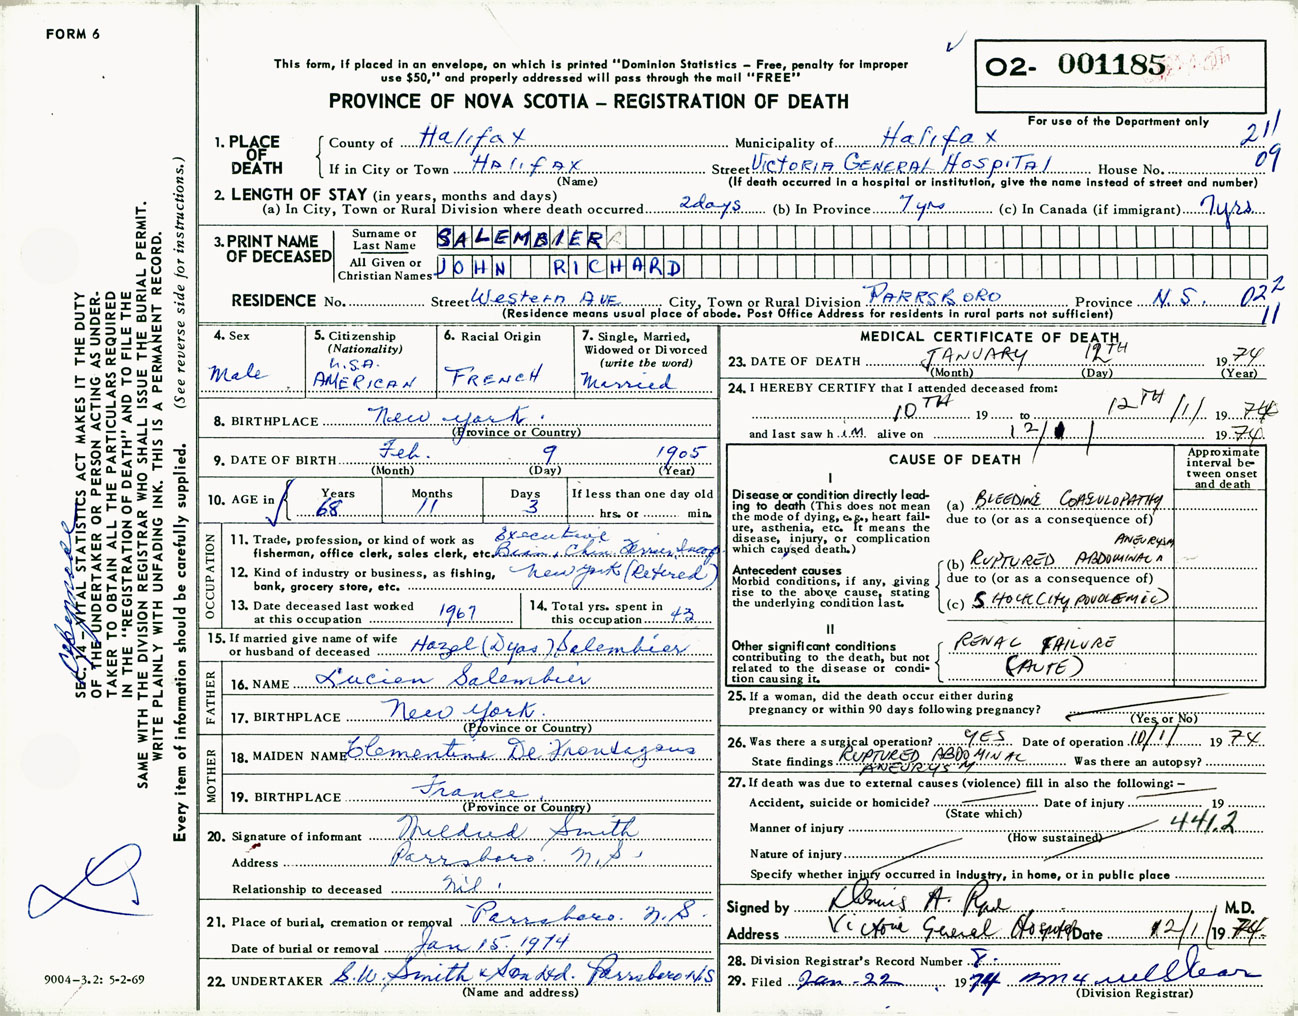 FORM 6
This form, if placed in an envelope, on which is printed "Dominion Statistics – Free, penalty for improper
use $50," and properly addressed will pass through the mail "FREE"
PROVINCE OF NOVA SCOTIA – REGISTRATION OF DEATH
02- 001185
For use of the Department only
1. PLACE OF DEATH
County of Halifax Municipality of Halifax 211
If in City or Town HALIFAX Street VICTORIA GENERAL HOSPITAL House No. 09
(Name) (If death occurred in a hospital or institution, give the name instead of street and number)
2. LENGTH OF STAY (in years, months and days)
(a) In City, Town or Rural Division where death occurred 2 days (b) In Province 7 yrs (c) In Canada (if immigrant) 7 yrs.
3. PRINT NAME OF DECEASED
Surname or Last Name SALEMBIER
All Given or Christian Names JOHN RICHARD
RESIDENCE No. Street Western Ave City, Town or Rural Division PARRSBORO Province N.S. 022
(Residence means usual place of abode. Post Office Address for residents in rural parts not sufficient) 11
4. Sex
Male
5. Citizenship
(Nationality)
U.S.A.
AMERICAN
6. Racial Origin
FRENCH
7. Single, Married,
Widowed or Divorced
(write the word)
Married
8. BIRTHPLACE New York.
(Province or Country)
9. DATE OF BIRTH Feb. 9 1905
(Month) (Day) (Year)
10. AGE in Years 68 Months 11 Days 3 If less than one day old
hrs. or min.
OCCUPATION
11. Trade, profession, or kind of work as Executive
fisherman, office clerk, sales clerk, etc.
12. Kind of industry or business, as fishing, New York (Retired)
bank, grocery store, etc.
13. Date deceased last worked
at this occupation 1967
14. Total yrs. spent in
this occupation 43
15. If married give name of wife
or husband of deceased Hazel (Dyas) Salembier
FATHER
16. NAME Lucien Salembier
17. BIRTHPLACE New York.
(Province or Country)
MOTHER
18. MAIDEN NAME Clementine De
19. BIRTHPLACE France.
(Province or Country)
20. Signature of informant Mildred Smith
Address Parrsboro. N.S.
Relationship to deceased Nil.
21. Place of burial, cremation or removal Parrsboro. N.S.
Date of burial or removal Jan 15. 1974
22. UNDERTAKER S.W. Smith & Son Ltd. Parrsboro NS
(Name and address)
MEDICAL CERTIFICATE OF DEATH
23. DATE OF DEATH JANUARY 12TH 1974
(Month) (Day) (Year)
24. I HEREBY CERTIFY that I attended deceased from:
10TH 19 to 12TH /1/ 1974
and last saw him alive on 12/1/ 1974.
CAUSE OF DEATH
Approximate
interval be-
tween onset
and death
I
Disease or condition directly lead-
ing to death (This does not mean
the mode of dying, e.g., heart fail-
ure, asthenia, etc. It means the
disease, injury, or complication
which caused death.)
(a) BLEEDING COAGULOPATHY
due to (or as a consequence of)
Antecedent causes
Morbid conditions, if any, giving
rise to the above cause, stating
the underlying condition last.
(b) RUPTURED ABDOMINAL ANEURYSM
due to (or as a consequence of)
(c) SHOCK (HYPOVOLEMIC)
II
Other significant conditions
contributing to the death, but not
related to the disease or condi-
tion causing it.
RENAL FAILURE
(AUTE)
25. If a woman, did the death occur either during
pregnancy or within 90 days following pregnancy?
(Yes or No)
26. Was there a surgical operation? YES Date of operation 10/1/ 1974
State findings RUPTURED ABDOMINAL ANEURYSM Was there an autopsy?
27. If death was due to external causes (violence) fill in also the following: –
Accident, suicide or homicide? Date of injury 19
(State which)
Manner of injury 441.2
(How sustained)
Nature of injury
Specify whether injury occurred in industry, in home, or in public place
Signed by Dennis A. M.D.
Address Victoria General Hospital Date 12/1/ 1974.
28. Division Registrar's Record Number 8.
29. Filed Jan-22 1974
(Division Registrar)
SEC. 14 – VITAL STATISTICS ACT MAKES IT THE DUTY
OF THE UNDERTAKER OR PERSON ACTING AS UNDER-
TAKER TO OBTAIN ALL THE PARTICULARS REQUIRED
IN THE "REGISTRATION OF DEATH" AND TO FILE THE
SAME WITH THE DIVISION REGISTRAR WHO SHALL ISSUE THE BURIAL PERMIT.
WRITE PLAINLY WITH UNFADING INK. THIS IS A PERMANENT RECORD.
Every item of information should be carefully supplied. (See reverse side for instructions.)
9004-3.2: 5-2-69